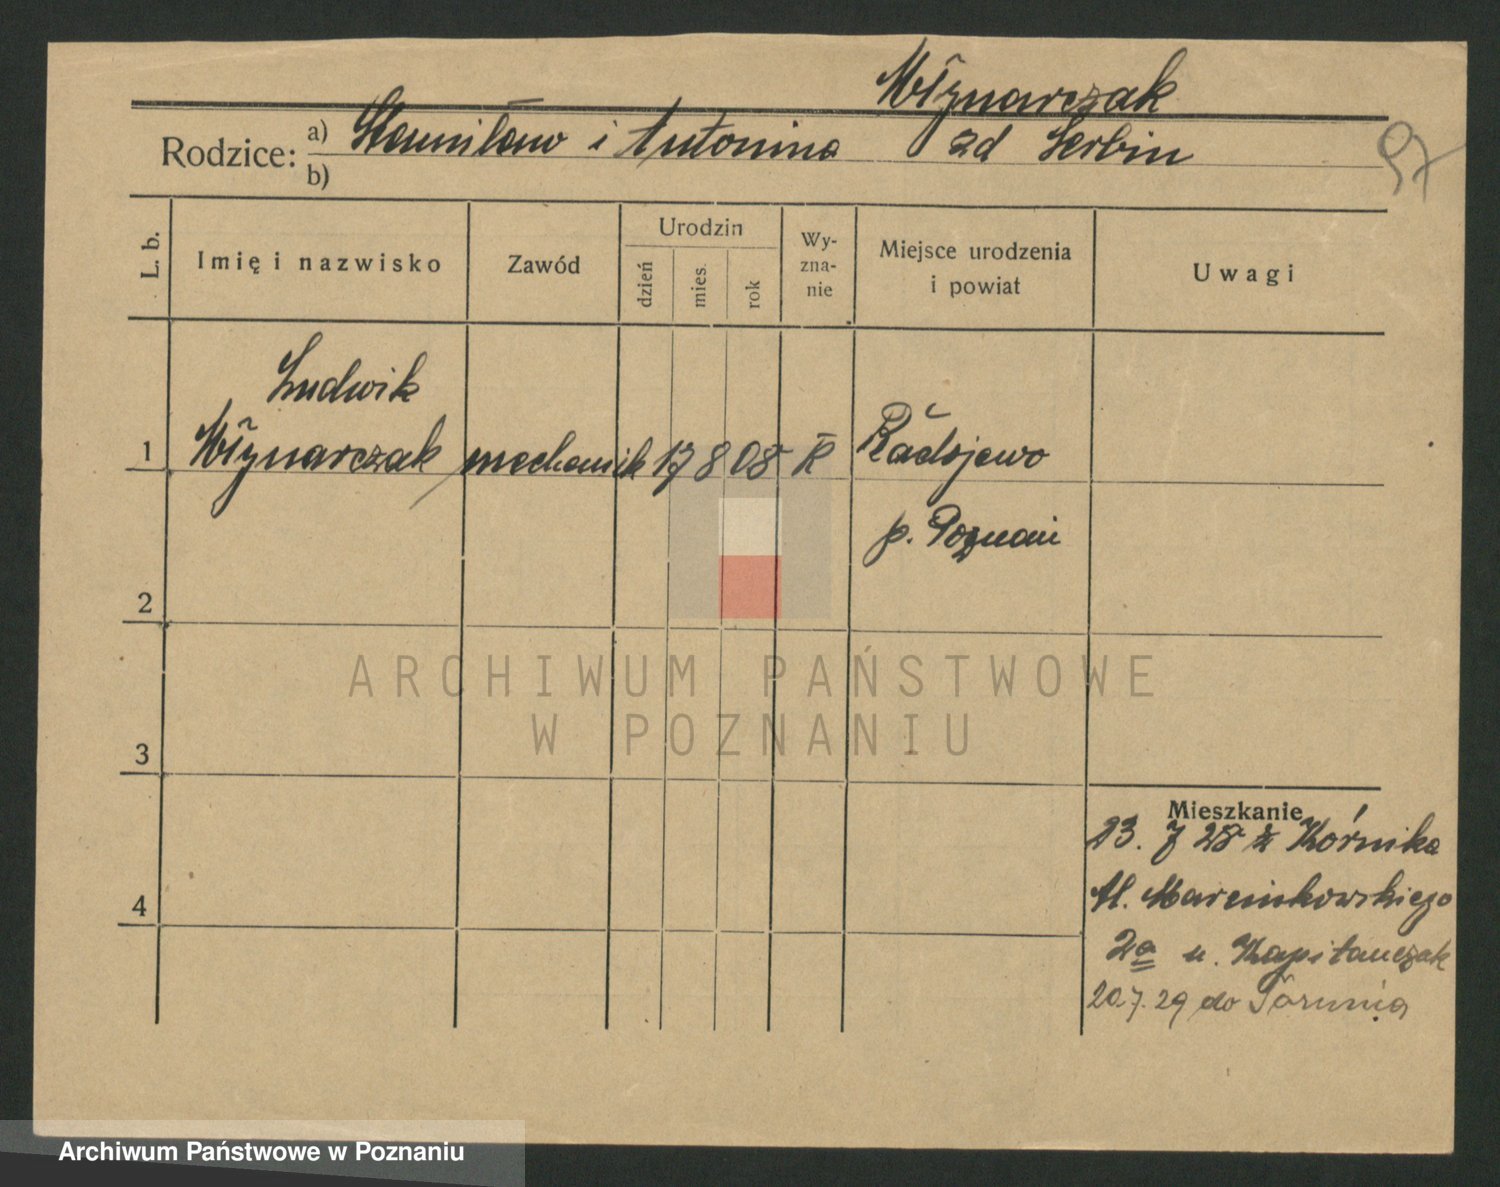 Młynarczak
Rodzice: a) Stanisław i Antonina zd Serbin
b)
97
L. b.
Imię i nazwisko
Zawód
Urodzin
dzień
mies.
rok
Wy-
zna-
nie
Miejsce urodzenia
i powiat
Uwagi
Ludwik
1 Młynarczak mechanik 17 8 08 K Radojewo
p. Poznań
2
3
4
ARCHIWUM PAŃSTWOWE
W POZNANIU
Mieszkanie
23. 7 28 z Kórnika
Al. Marcinkowskiego
2a u. Kapitańczak
20.7.29 do Torunia
Archiwum Państwowe w Poznaniu